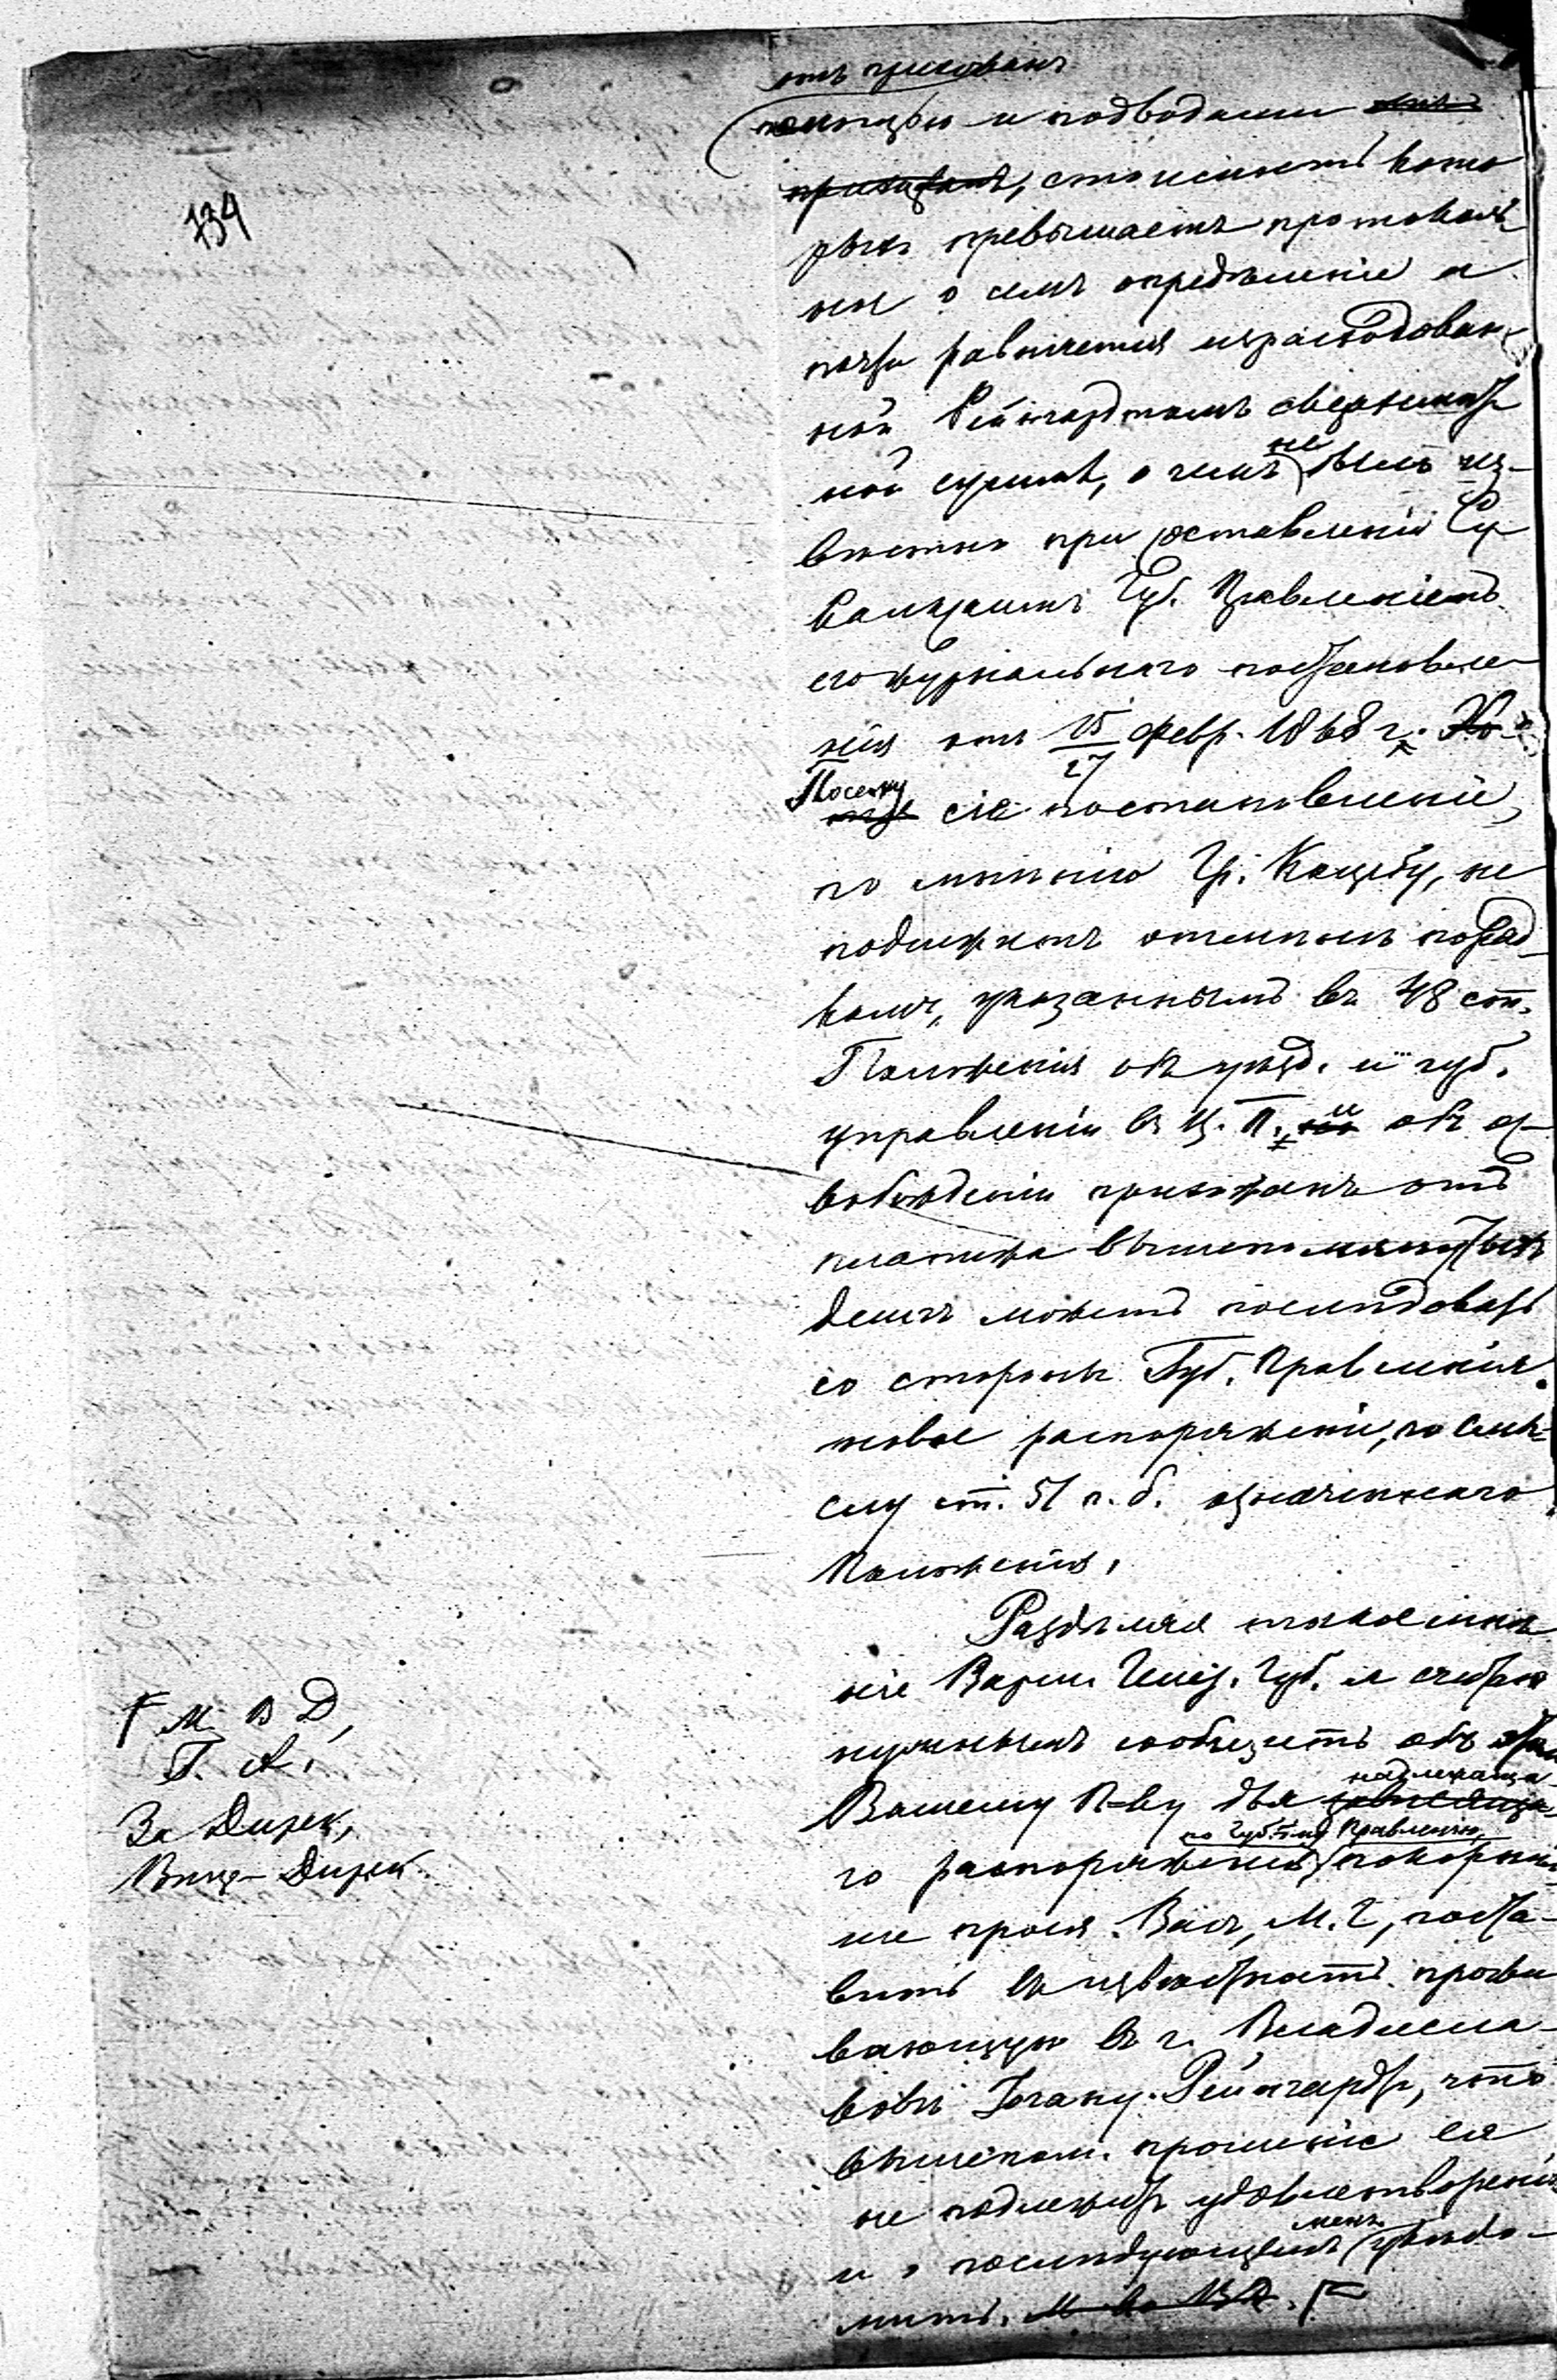 отъ прихожанъ
помощью и подводами
прихожанъ, стоимость кото
рыхъ превышаетъ протоколь
ное о семъ опредѣленіе и
почти равняется израсходован
ной Рейнгардтомъ сверхсмѣт
ной суммѣ, о чемъ не было из-
вѣстно при составленіи Су
валкскимъ Губ. Правленіемъ
его журнальнаго постановле-
нія отъ 15/27 февр. 1868 г.
Посему сіе постановленіе,
по мнѣнію Гр. Коцебу, не
подлежитъ отмѣнѣ поряд
комъ, указаннымъ въ 48 ст.
Положенія объ уѣзд. и губ.
управленіи въ Ц. П. и объ ос
вобожденіи прихожанъ отъ
платежа вышепомянутыхъ
денегъ можетъ послѣдовать
со стороны Губ. Правленія
новое распоряженіе, по смы-
слу ст. 51 п. б. означеннаго
Положенія.
Раздѣляя таковое мнѣ
ніе Варш. Генер. Губ. и считаю
нужнымъ сообщить объ этомъ
надлежаща
Вашему П-ву для зависяща
по Губ-му Правленію,
го распоряженія покорнѣй
ше прося Васъ, М. Г., поста-
вить въ извѣстность прожи
вающую въ г. Владисла-
вовѣ Іогану Рейнгардтъ, что
вышепом. прошеніе ея
не подлежитъ удовлетворенію
и о послѣдующемъ меня увѣдо-
мить. М-во ВД.
134
М. В Д,
Г. А.
За Дирек,
Вице-Дирек